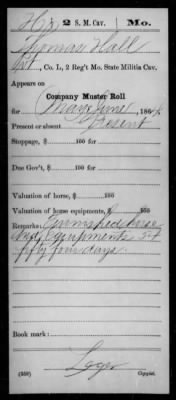 H | 2 S. M. Cav. | Mo.
Thomas Hall
Pvt, Co. L, 2 Reg't Mo. State Militia Cav.
Appears on
Company Muster Roll
for May & June, 1864.
Present or absent Present
Stoppage, $ 100 for
Due Gov't, $ 100 for
Valuation of horse, $ 100
Valuation of horse equipments, $ 100
Remarks: horse
and Equipments 54
fifty four days.
Book mark:
(358)
Copyist.